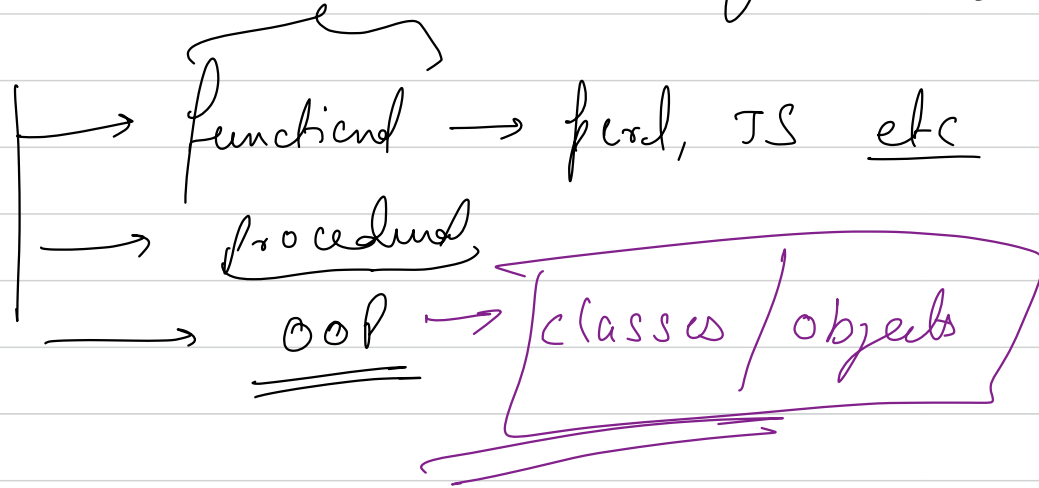 functional → perl, JS etc
→ procedural
→ OOP → classes / objects